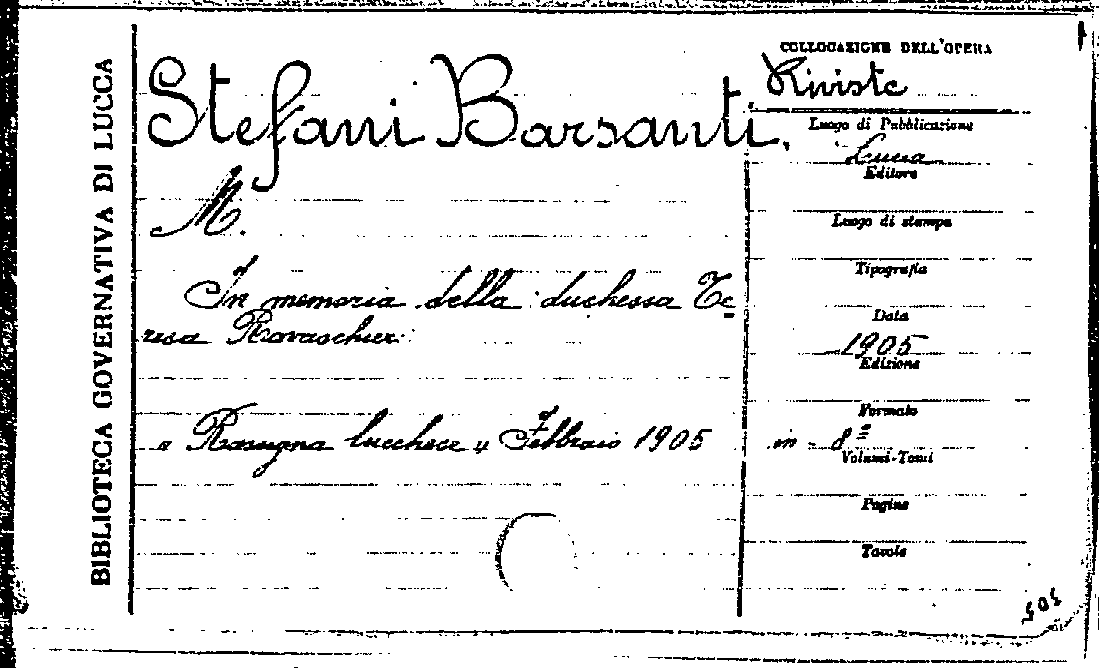 BIBLIOTECA GOVERNATIVA DI LUCCA
Stefani Barsanti.
M.
In memoria della duchessa Te=
resa Ravaschier.
" Rassegna lucchese " Febbraio 1905
COLLOCAZIONE DELL'OPERA
Riviste
Luogo di Pubblicazione
Lucca
Editore
Luogo di stampa
Tipografia
Data
1905
Edizione
Formato
in - 8º
Volumi-Tomi
Pagine
Tavole
505